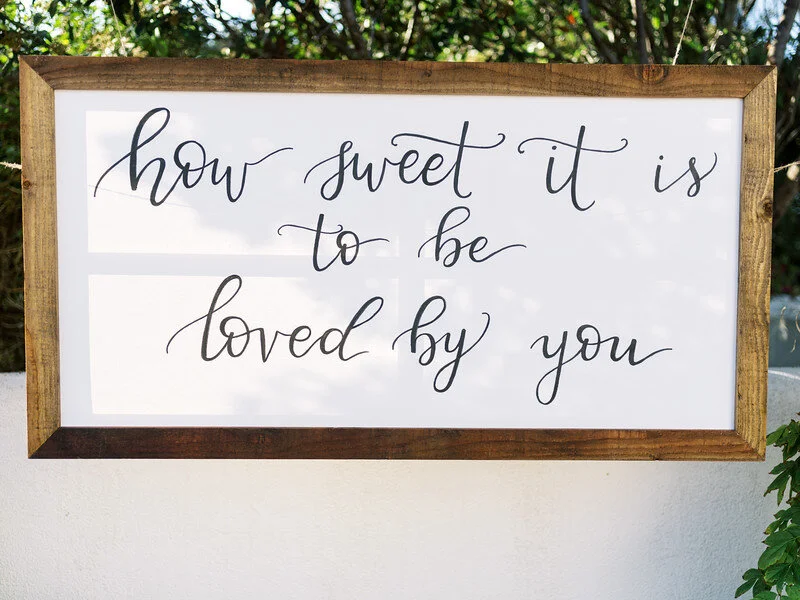 how sweet it is
to be
loved by you